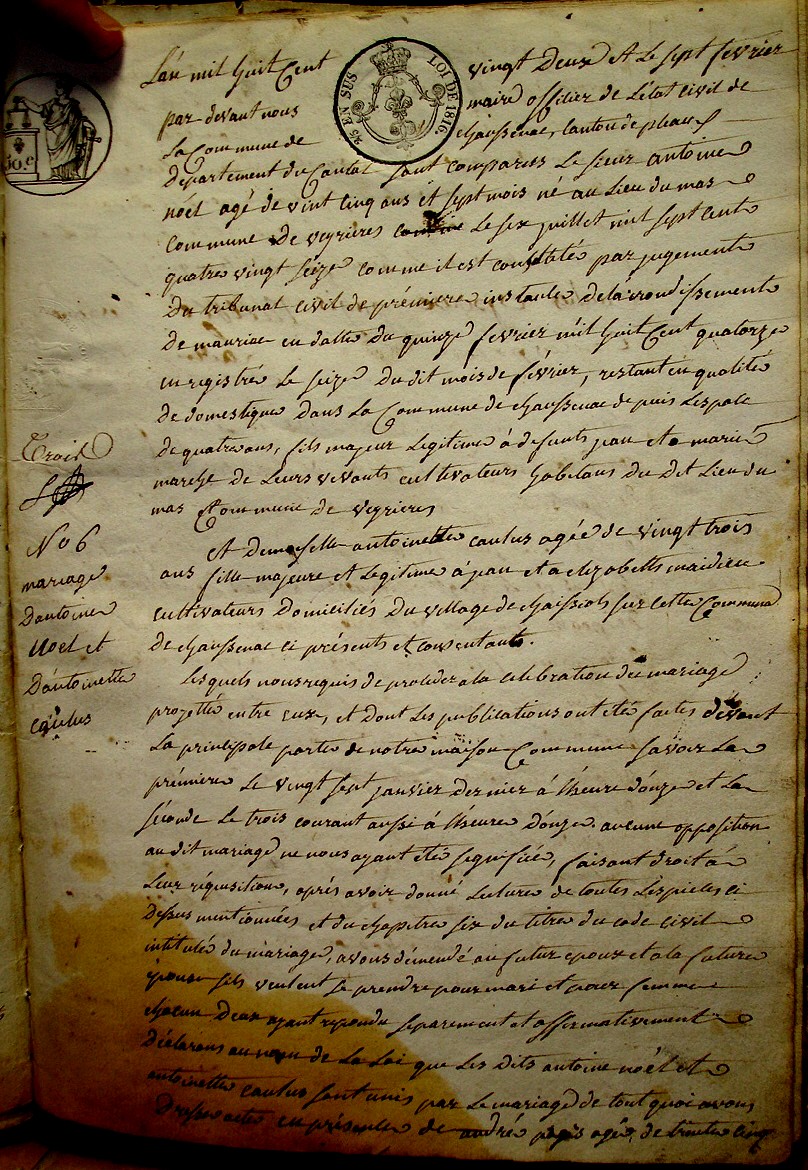 L'an mil huit Cent vingt Deux et Le sept fevrier
par devant nous maire offitier de L'etat Civil de
La Commune de chaussenac, Canton de pleaux
Departement du Cantal sont comparus Le sieur antoine
noël agé de vint cinq ans et sept mois né au Lieu du mas
Commune de veyrieres Le six juillet mil sept Cent
quatre vingt seize comme il est constitté par jugement
Du tribunal civil de prémiere instance de L'arrondissement
De mauriac en datte du quinze fevrier mil huit Cent quatorze
enregistré Le seize du dit mois de février, restant en qualité
de domestique Dans La Commune de chaussenac depuis L'espace
de quatre ans, fils majeur Legitime à defunts jean et a marie
marche de Leurs vivants cultivateurs habitans du Dit Lieu du
mas Commune de veyrieres
Et Demoiselle antoinette caulus agée de vingt trois
ans fille majeure et Legitime à jean et a elizabeth maidieu
cultivateurs Domiciliés Du village de sur Cette Commune
de chaussenac ci présents et consentants.
Lesquels nous requis de proceder a la celebration du mariage
projetté entre eux, et dont Les publications ont été faites devant
La principale porte de notre maison Commune savoir La
prémiere Le vingt sept janvier dernier à L'heure d'onze et La
séconde Le trois courant aussi à L'heure D'onze, aucune opposition
au dit mariage ne nous ayant été signifiée, faisant droit à
Leur réquisition, aprés avoir donné Lecture de toutes Les pieces ci
Dessus mentionnées et du chapitre six du titre du code civil
intitulé du mariage, avons démendé au futur epoux et a la future
épouse s'ils veulent se prendre pour mari et pour femme
chacun Deux ayant repondu separement et affirmativement
Déclarons au nom de La Loi que Les dits antoine noël et
antoinette caulus sont unis par Le mariage de tout quoi avons
Dressé acte en présence de andré agé de trente cinq
25 EN SUS LOI DE 1816
50.c
Droit
No 6
mariage
D'antoine
Noel et
D'antoinette
caulus